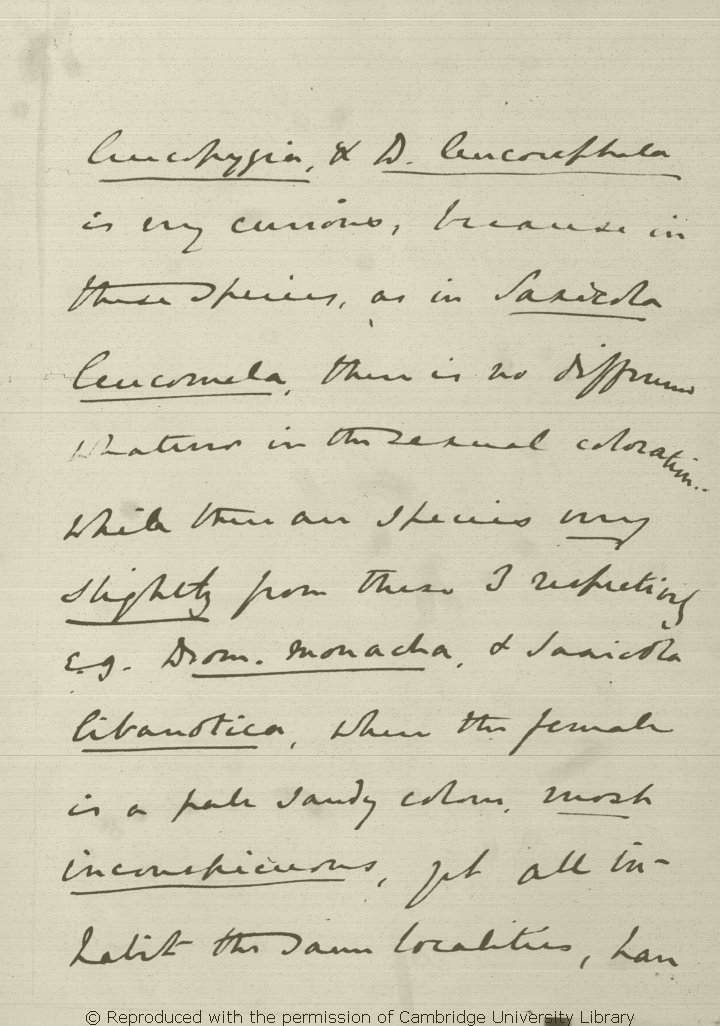 leucopygia, & D. leucocephala
is very curious, because in
these species, as in Saxicola
leucomela, there is no difference
whatever in the sexual coloration..
while there are species very
slightly from these I respecting
e.g. Drom. monacha, & Saxicola
libanotica, where the female
is a pale sandy colour, most
inconspicuous, yet all in-
habit the same localities, have
© Reproduced with the permission of Cambridge University Library